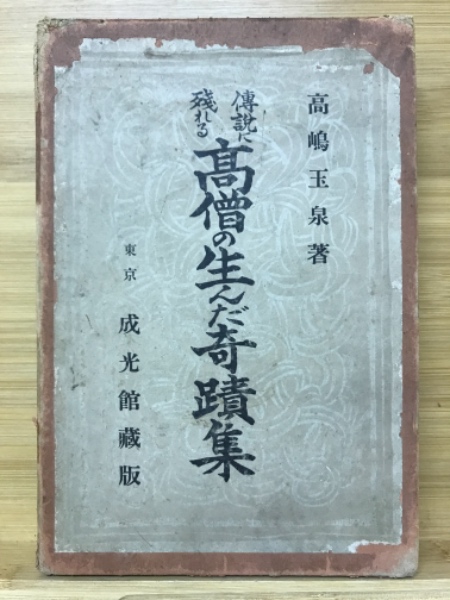 高嶋玉泉著
傳說に
殘れる
高僧の生んだ奇蹟集
東京
成光館藏版